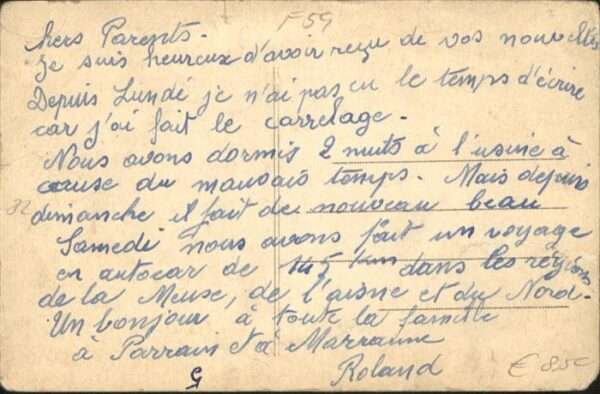 F59
hers Parents.
Je suis heureux d'avoir reçu de vos nouvelles
Depuis Lundé je n'ai pas eu le temps d'écrire
car j'ai fait le carrelage.
Nous avons dormis 2 nuits à l'usine à
cause du mauvais temps. Mais depuis
32
dimanche il fait de nouveau beau
Samedi nous avons fait un voyage
en autocar de 145 km dans les régions
de la Meuse, de l'aisne et du Nord.
Un bonjour à toute la famille
à Parrain et à Marraine
Roland
€ 8,50